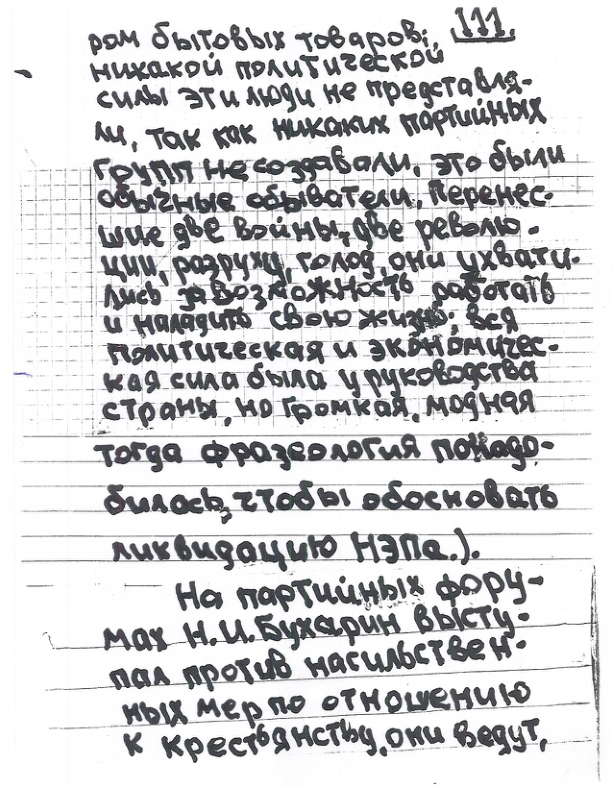 111.
ром бытовых товаров;
никакой политической
силы эти люди не представля-
ли, так как никаких партийных
групп не создавали, это были
обычные обыватели. Перенес-
шие две войны, две револю-
ции, разруху, голод, они ухвати-
лись за возможность работать
и наладить свою жизнь; вся
политическая и экономичес-
кая сила была у руководства
страны, но громкая, модная
тогда фразеология понадо-
билась, чтобы обосновать
ликвидацию НЭПа.).
На партийных фору-
мах Н.И.Бухарин высту-
пал против насильствен-
ных мер по отношению
к крестьянству, они ведут,